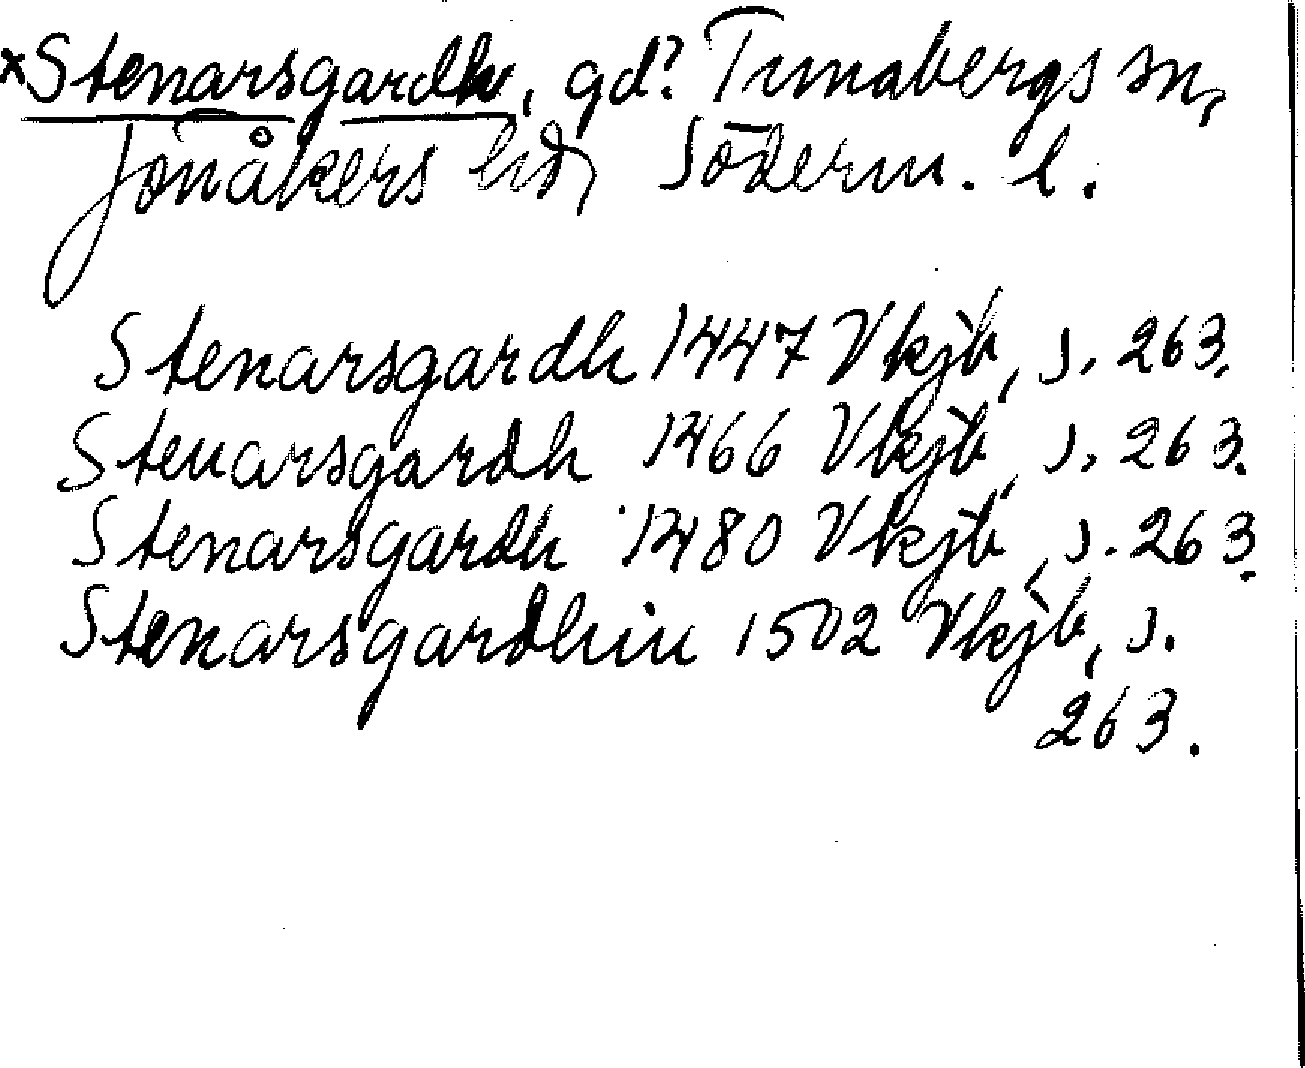 ×Stenarsgardh, gd? Tunabergs sn,
Jönåkers hd, Söderm. l.
Stenarsgardh 1447 Vkjb, s. 263.
Stenarsgardh 1466 Vkjb, s. 263.
Stenarsgardh 1480 Vkjb, s. 263.
Stenarsgardhin 1502 Vkjb, s.
263.